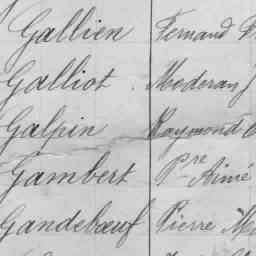 Gallien Fernand
Galliot Moderan
Galpin Raymond
Gambert Pre Aimé
Gandebœuf Pierre